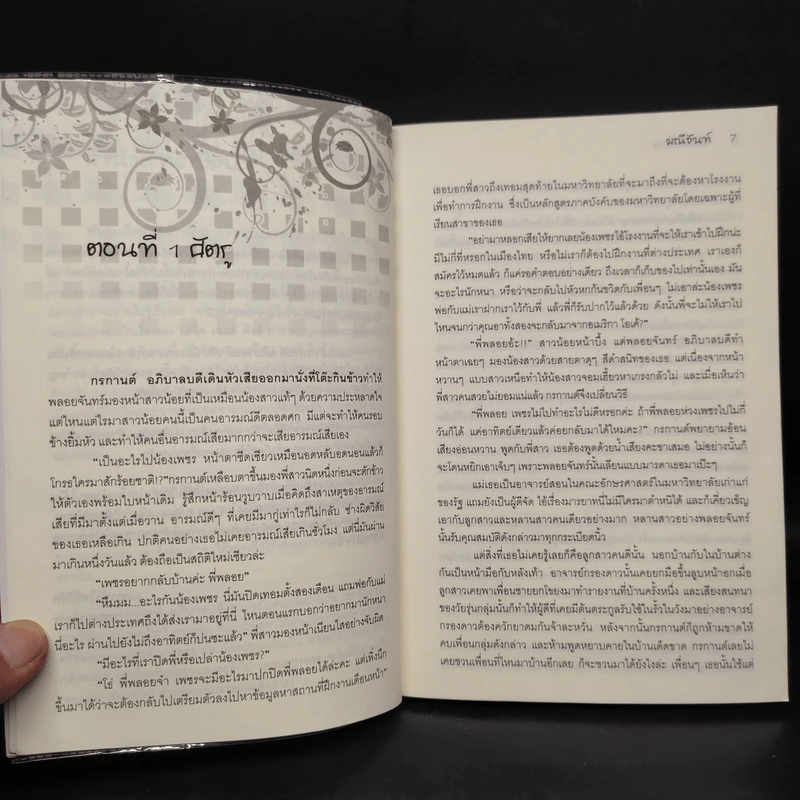 ตอนที่ 1 ศัตรู
กรกานต์ อภิบาลบดีเดินหัวเสียออกมานั่งที่โต๊ะกินข้าวทำให้
พลอยจันทร์มองหน้าสาวน้อยที่เป็นเหมือนน้องสาวแท้ๆ ด้วยความประหลาดใจ
แต่ไหนแต่ไรมาสาวน้อยคนนี้เป็นคนอารมณ์ดีตลอดศก มีแต่จะทำให้คนรอบ
ข้างยิ้มหัว และทำให้คนอื่นอารมณ์เสียมากกว่าจะเสียอารมณ์เสียเอง
“เป็นอะไรไปน้องเพชร หน้าตาซีดเซียวเหมือนอดหลับอดนอนแล้วก็
โกรธใครมาสักร้อยชาติ!?”กรกานต์เหลือบตาขึ้นมองพี่สาวนิดหนึ่งก่อนจะตักข้าว
ให้ตัวเองพร้อมใบหน้าเดิม รู้สึกหน้าร้อนวูบวาบเมื่อคิดถึงสาเหตุของอารมณ์
เสียที่มีมาตั้งแต่เมื่อวาน อารมณ์ดีๆ ที่เคยมีมากู่เท่าไรก็ไม่กลับ ช่างผิดวิสัย
ของเธอเหลือเกิน ปกติคนอย่างเธอไม่เคยอารมณ์เสียเกินชั่วโมง แต่นี่มันผ่าน
มาเกินหนึ่งวันแล้ว ต้องถือเป็นสถิติใหม่เชียวล่ะ
“เพชรอยากกลับบ้านค่ะ พี่พลอย”
“หืมมม...อะไรกันน้องเพชร นี่มันปิดเทอมตั้งสองเดือน แถมพ่อกับแม่
เราก็ไปต่างประเทศถึงได้ส่งเรามาอยู่ที่นี่ ไหนตอนแรกบอกว่าอยากมานักหนา
นี่อะไร ผ่านไปยังไม่ถึงอาทิตย์ก็บ่นซะแล้ว” พี่สาวมองหน้าเนียนใสอย่างจับผิด
“มีอะไรที่เราปิดพี่หรือเปล่าน้องเพชร?”
“โธ่ พี่พลอยจ๋า เพชรจะมีอะไรมาปกปิดพี่พลอยได้ล่ะคะ แต่เพิ่งนึก
ขึ้นมาได้ว่าจะต้องกลับไปเตรียมตัวลงไปหาข้อมูลหาสถานที่ฝึกงานเดือนหน้า”
มณีจันท์ 7
เธอบอกพี่สาวถึงเทอมสุดท้ายในมหาวิทยาลัยที่จะมาถึงที่จะต้องหาโรงงาน
เพื่อทำการฝึกงาน ซึ่งเป็นหลักสูตรภาคบังคับของมหาวิทยาลัยโดยเฉพาะผู้ที่
เรียนสาขาของเธอ
“อย่ามาหลอกเสียให้ยากเลยน้องเพชรไอ้โรงงานที่จะให้เราเข้าไปฝึกน่ะ
มีไม่กี่ที่หรอกในเมืองไทย หรือไม่เราก็ต้องไปฝึกงานที่ต่างประเทศ เราเองก็
สมัครไว้หมดแล้ว ก็แค่รอคำตอบอย่างเดียว ถึงเวลาก็เก็บของไปเท่านั้นเอง มัน
จะอะไรนักหนา หรือว่าจะกลับไปหัวหกก้นขวิดกับเพื่อนๆ ไม่เอาล่ะน้องเพชร
พ่อกับแม่เราฝากเราไว้กับพี่ แล้วพี่ก็รับปากไว้แล้วด้วย ดังนั้นพี่จะไม่ให้เราไป
ไหนจนกว่าคุณอาทั้งสองจะกลับมาจากอเมริกา โอเค้?”
“พี่พลอยอ้ะ!!” สาวน้อยหน้าบึ้ง แต่พลอยจันทร์ อภิบาลบดีทำ
หน้าตาเฉยๆ มองน้องสาวด้วยสายตาดุๆ สีดำสนิทของเธอ แต่เนื่องจากหน้า
หวานๆ แบบสาวเหนือทำให้น้องสาวจอมเฮี้ยวหาเกรงกลัวไม่ และเมื่อเห็นว่า
พี่สาวคนสวยไม่ยอมแน่แล้ว กรกานต์จึงเปลี่ยนวิธี
“พี่พลอย เพชรไม่ไปทำอะไรไม่ดีหรอกค่ะ ถ้าพี่พลอยห่วงเพชรไปไม่กี่
วันก็ได้ แค่อาทิตย์เดียวแล้วค่อยกลับมาได้ไหมคะ?” กรกานต์พยายามอ้อน
เสียงอ่อนหวาน พูดกับพี่สาว เธอต้องพูดด้วยน้ำเสียงคะขาเสมอ ไม่อย่างนั้นก็
จะโดนหยิกเอาเจ็บๆ เพราะพลอยจันทร์นั้นเลียนแบบมารดาเธอมาเป๊ะๆ
แม่เธอเป็นอาจารย์สอนในคณะอักษรศาสตร์ในมหาวิทยาลัยเก่าแก่
ของรัฐ แถมยังเป็นผู้ดีจัด ไอ้เรื่องมารยาทนี่ไม่มีใครมาตำหนิได้ และก็เคี่ยวเข็ญ
เอากับลูกสาวและหลานสาวคนเดียวอย่างมาก หลานสาวอย่างพลอยจันทร์
นั้นรับคุณสมบัติดังกล่าวมาทุกกระเบียดนิ้ว
แต่สิ่งที่เธอไม่เคยรู้เลยก็คือลูกสาวคนดีนั้น นอกบ้านกับในบ้านต่าง
กันเป็นหน้ามือกับหลังเท้า อาจารย์กรองดาวนั้นเคยยกมือขึ้นลูบหน้าอกเมื่อ
ลูกสาวเคยพาเพื่อนชายยกโขยงมาทำรายงานที่บ้านครั้งหนึ่ง และเสียงสนทนา
ของวัยรุ่นกลุ่มนั้นก็ทำให้ผู้ดีที่เคยมีต้นตระกูลรับใช้ในรั้วในวังมาอย่างอาจารย์
กรองดาวต้องคว้ายาดมกันจ้าละหวั่น หลังจากนั้นกรกานต์ก็ถูกห้ามขาดให้
คบเพื่อนกลุ่มดังกล่าว และห้ามพูดหยาบคายในบ้านเด็ดขาด กรกานต์เลยไม่
เคยชวนเพื่อนที่ไหนมาบ้านอีกเลย ก็จะชวนมาได้ยังไงล่ะ เพื่อนๆ เธอนั้นใช้แต่